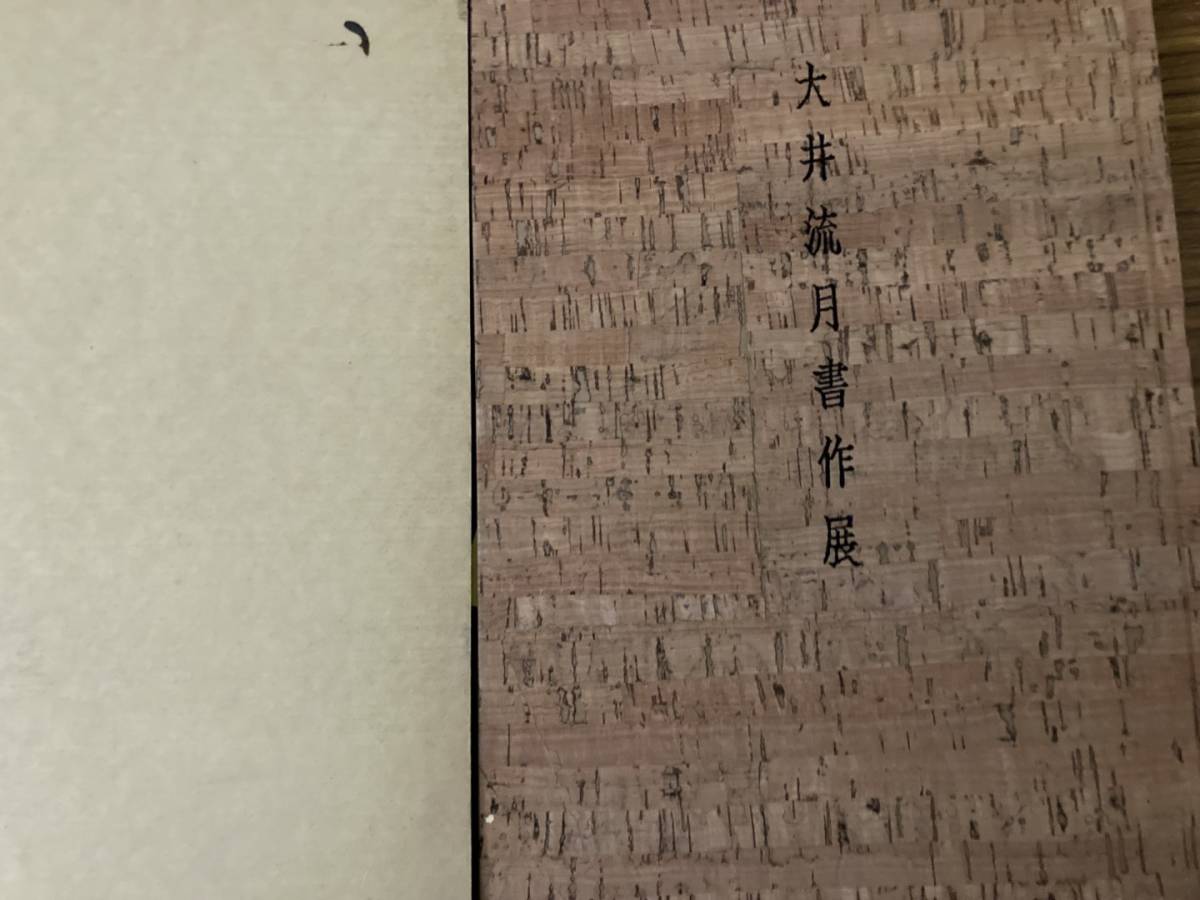 大井流月書作展